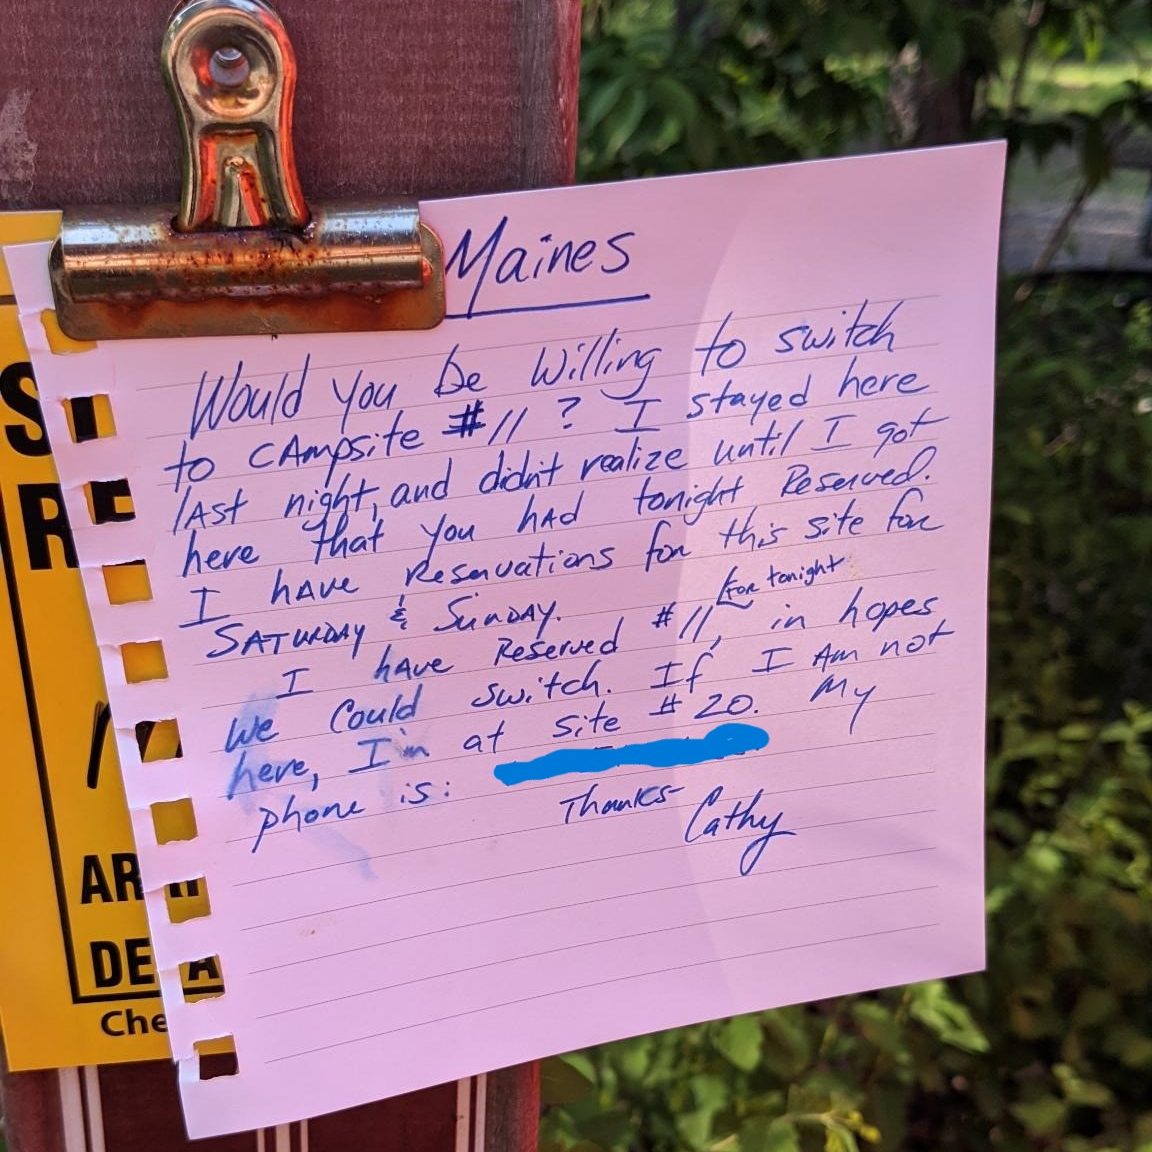 Maines
Would you be willing to switch
to CAmpsite #11? I stayed here
lAst night, and didn't realize until I got
here that you hAd tonight Reserved.
I hAve Reservations for this site for
SATURDAY & SUNDAY.
for tonight
I hAve Reserved #11, in hopes
We Could switch. If I Am not
here, I'm at site #20. My
phone is:
Thanks
Cathy
S
RE
AR
DE A
Che